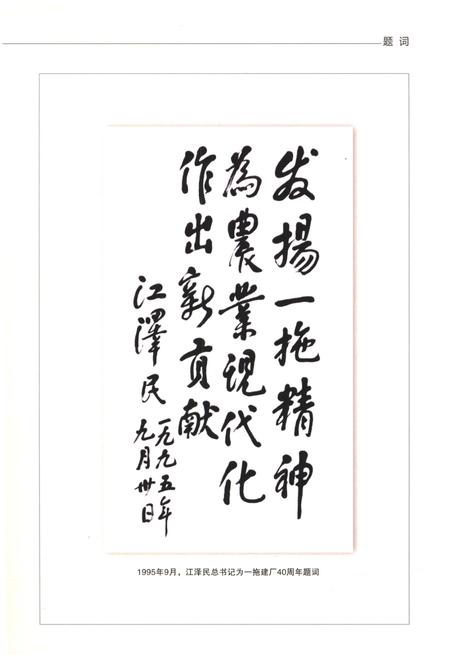 题 词
发揚一拖精神
為農業现代化
作出新貢献
江澤民
一九九五年
九月卅日
1995年9月，江泽民总书记为一拖建厂40周年题词